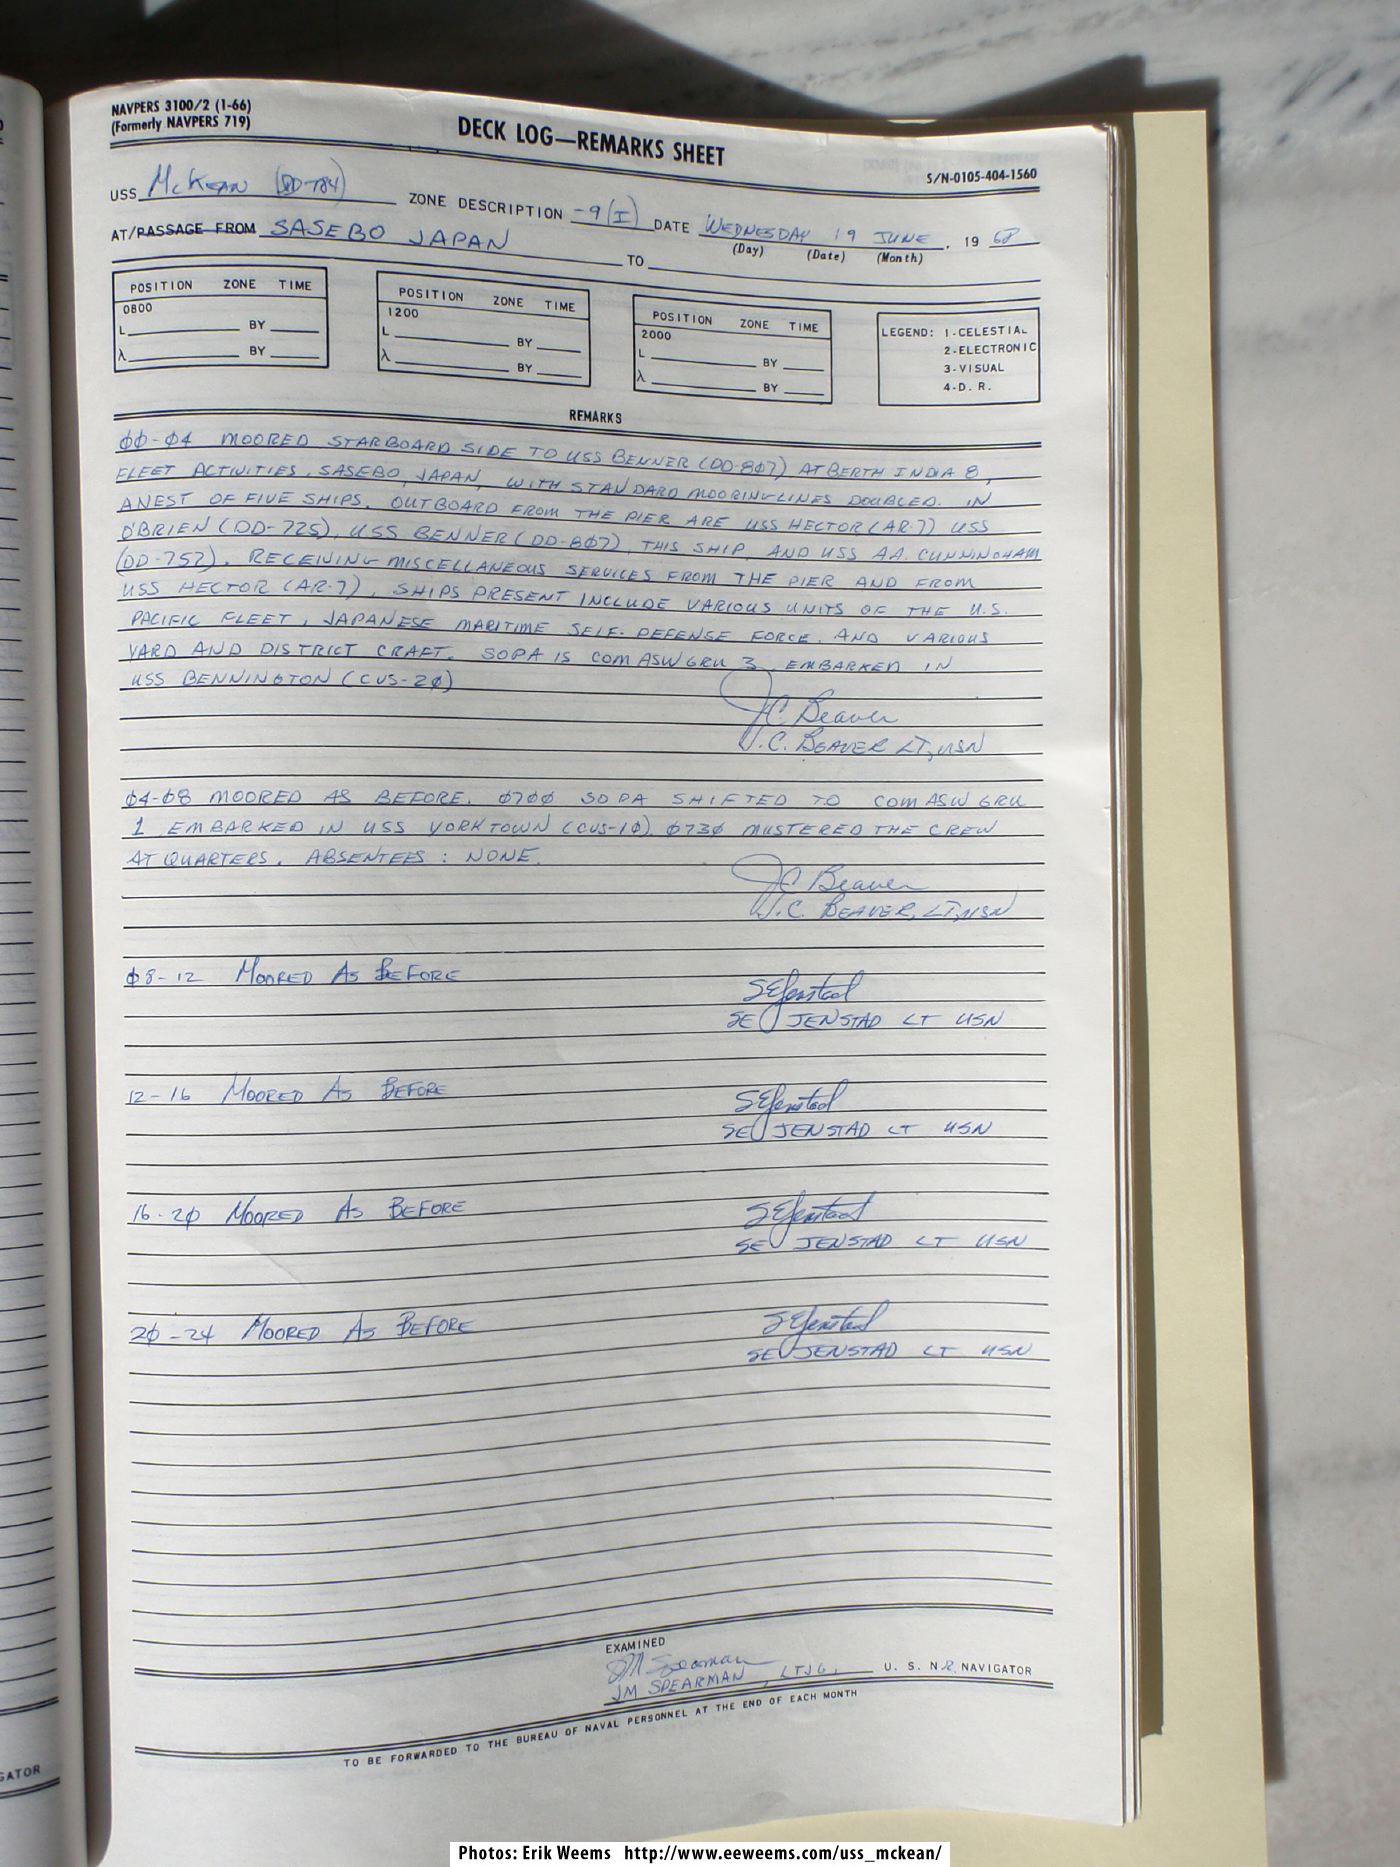 NAVPERS 3100/2 (1-66)
(Formerly NAVPERS 719)
DECK LOG—REMARKS SHEET
S/N-0105-404-1560
USS McKEAN (DD-784) ZONE DESCRIPTION -9(I) DATE WEDNESDAY 19 JUNE, 19 68
(Day) (Date) (Month)
AT/PASSAGE FROM SASEBO JAPAN TO
POSITION ZONE TIME
0800
L BY
λ BY
POSITION ZONE TIME
1200
L BY
λ BY
POSITION ZONE TIME
2000
L BY
λ BY
LEGEND: 1-CELESTIAL
2-ELECTRONIC
3-VISUAL
4-D. R.
REMARKS
ØØ-Ø4 MOORED STARBOARD SIDE TO USS BENNER (DD-8Ø7) AT BERTH INDIA 8,
FLEET ACTIVITIES, SASEBO, JAPAN, WITH STANDARD MOORING LINES DOUBLED. IN
A NEST OF FIVE SHIPS. OUTBOARD FROM THE PIER ARE USS HECTOR (AR-7) USS
O'BRIEN (DD-725), USS BENNER (DD-8Ø7), THIS SHIP, AND USS A.A. CUNNINGHAM
(DD-752). RECEIVING MISCELLANEOUS SERVICES FROM THE PIER AND FROM
USS HECTOR (AR-7). SHIPS PRESENT INCLUDE VARIOUS UNITS OF THE U.S.
PACIFIC FLEET, JAPANESE MARITIME SELF-DEFENSE FORCE, AND VARIOUS
YARD AND DISTRICT CRAFT. SOPA IS COMASWGRU 3 EMBARKED IN
USS BENNINGTON (CVS-2Ø)
JC Beaver
J.C. BEAVER LT, USN
Ø4-Ø8 MOORED AS BEFORE. Ø7ØØ SOPA SHIFTED TO COMASWGRU
1 EMBARKED IN USS YORKTOWN (CVS-1Ø). Ø73Ø MUSTERED THE CREW
AT QUARTERS. ABSENTEES: NONE.
JC Beaver
J.C. BEAVER, LT, USN
Ø8-12 MOORED AS BEFORE
SE Jenstad
SE JENSTAD LT USN
12-16 MOORED AS BEFORE
SE Jenstad
SE JENSTAD LT USN
16-2Ø MOORED AS BEFORE
SE Jenstad
SE JENSTAD LT USN
2Ø-24 MOORED AS BEFORE
SE Jenstad
SE JENSTAD LT USN
EXAMINED
JM Spearman
JM SPEARMAN, LTJG, U. S. N.R. NAVIGATOR
TO BE FORWARDED TO THE BUREAU OF NAVAL PERSONNEL AT THE END OF EACH MONTH
GATOR
Photos: Erik Weems http://www.eeweems.com/uss_mckean/